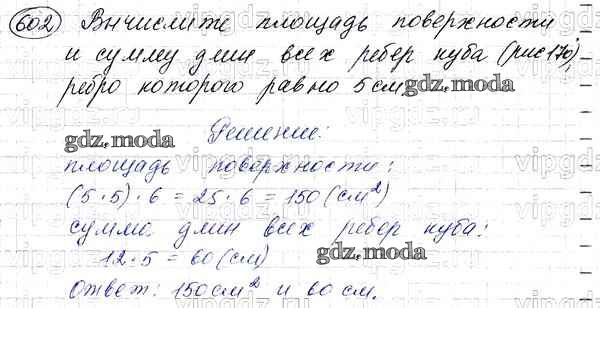 602 Вычислите площадь поверхности
и сумму длин всех ребер куба (рис 170),
ребро которого равно 5 см. gdz.moda
gdz.moda Решение:
площадь поверхности:
(5·5)·6 = 25·6 = 150 (см²)
сумма длин всех ребер куба:
12·5 = 60 (см) gdz.moda
Ответ: 150 см² и 60 см.